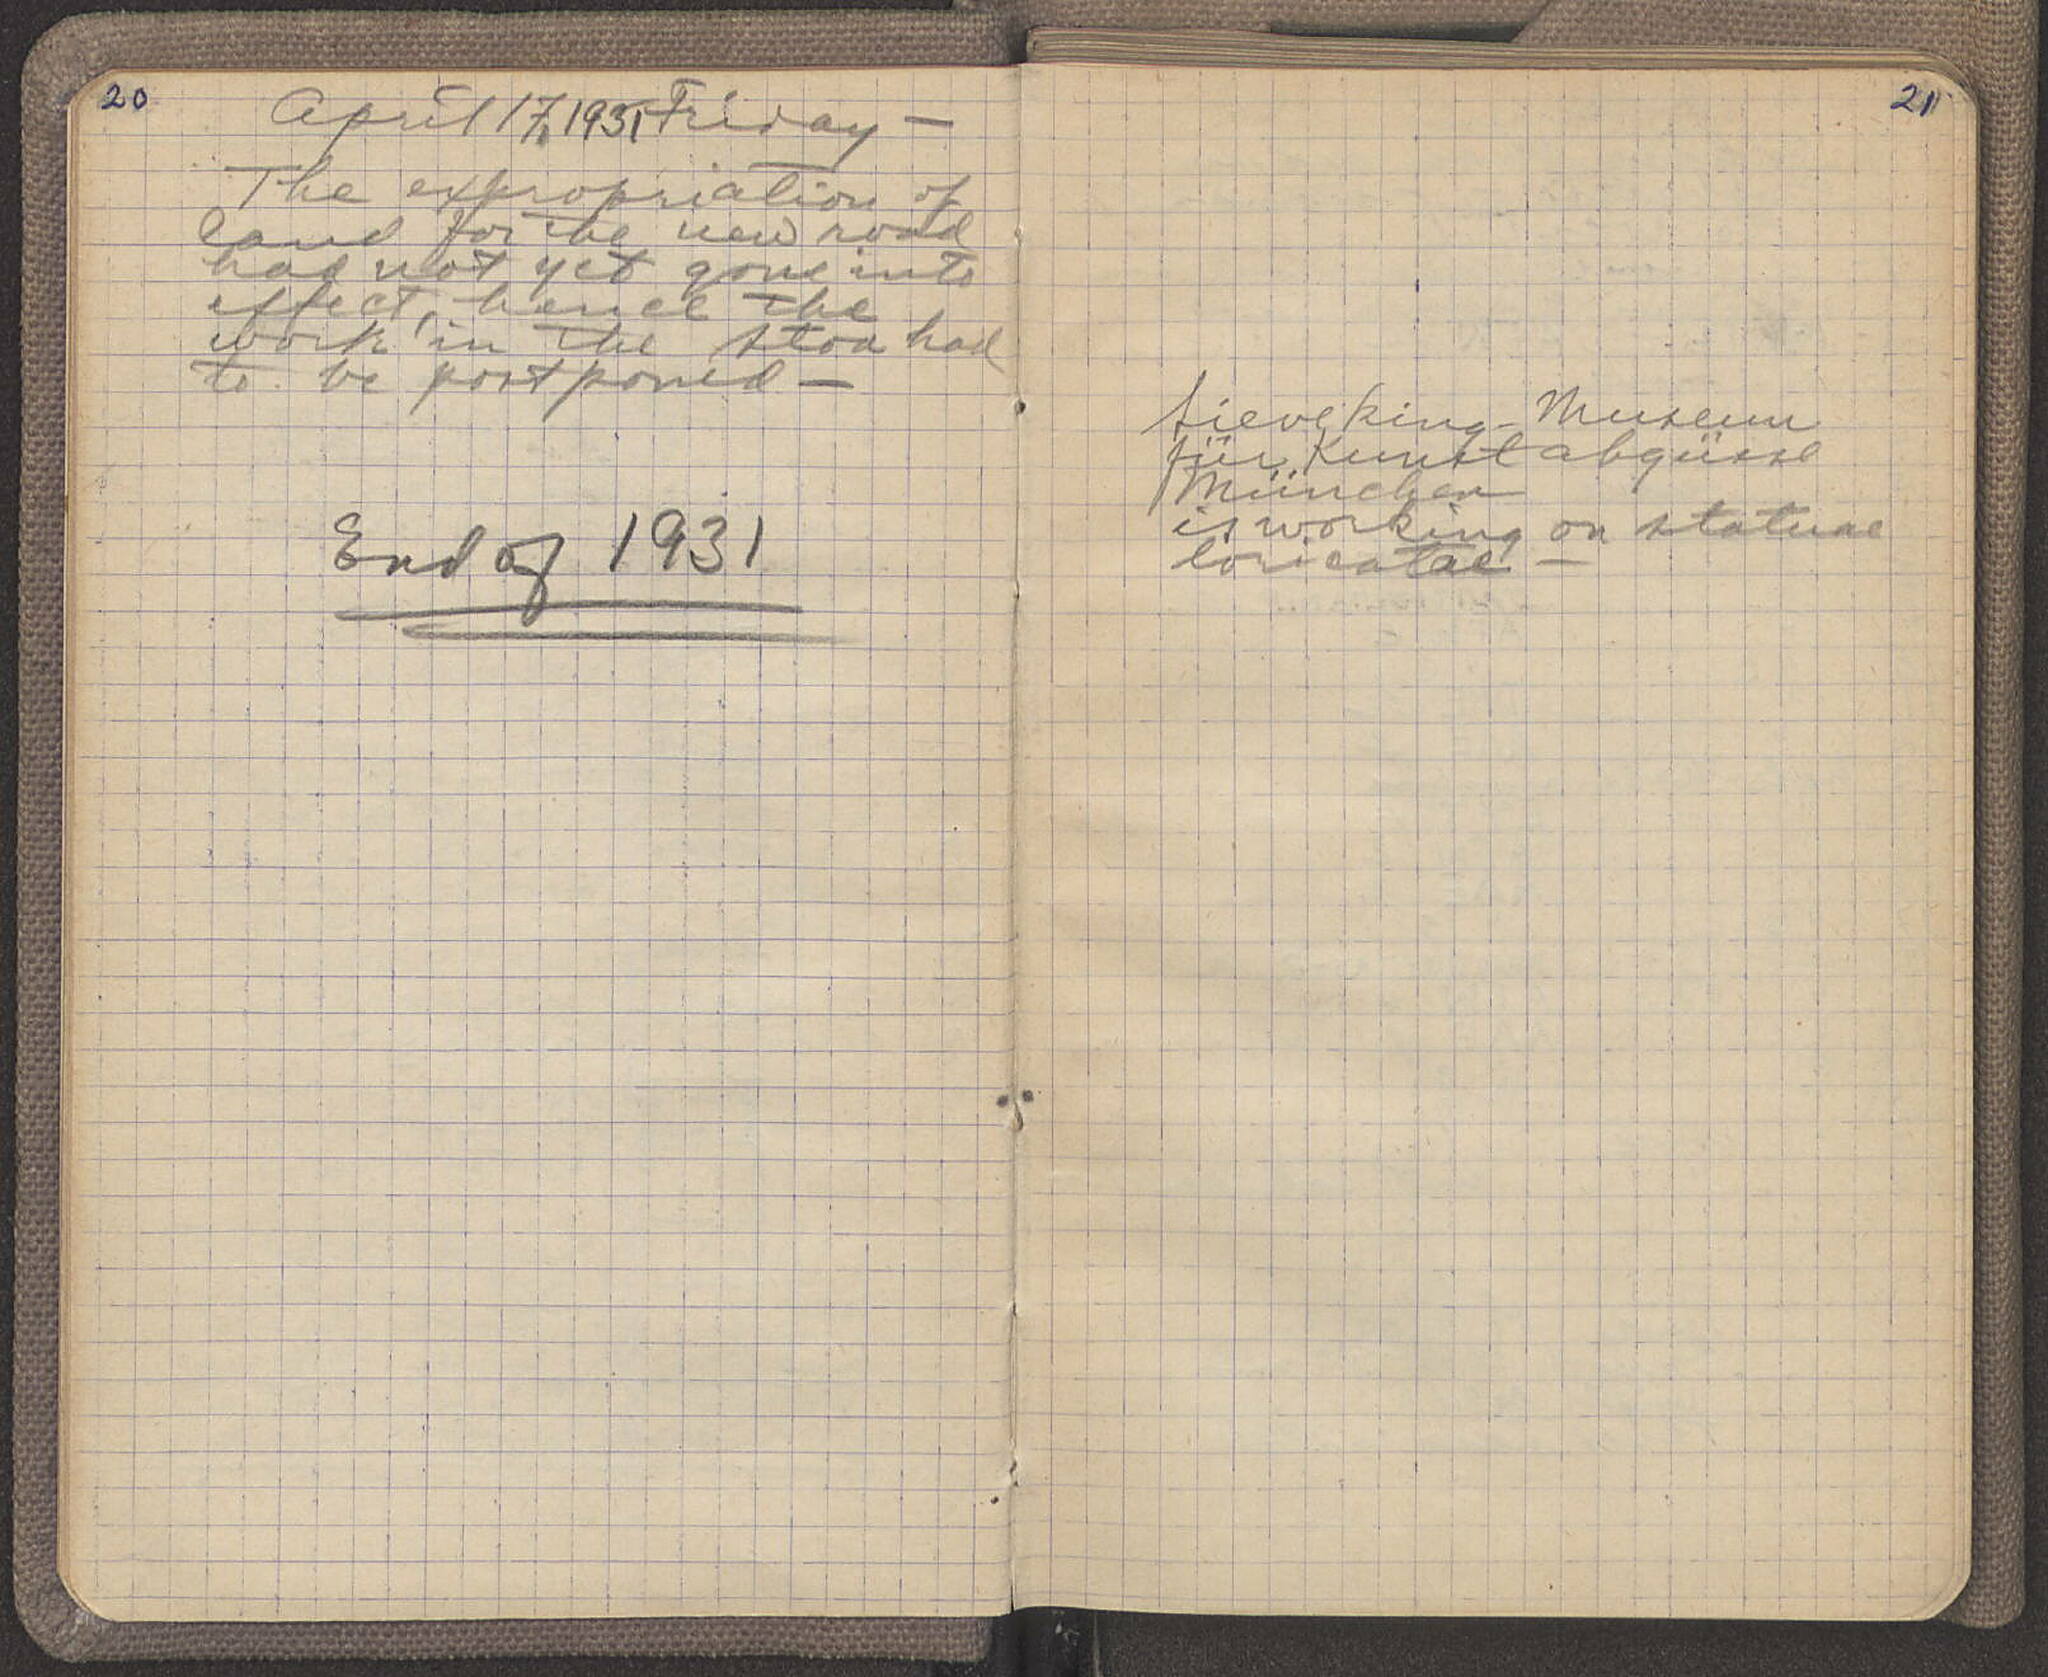 20
April 17, 1931 Friday —
The expropriation of
land for the new road
had not yet gone into
effect, hence the
work in the Stoa had
to be postponed —
End of 1931
21
Sieveking - Museum
für Kunstabgüsse
München
is working on statuae
loricatae —